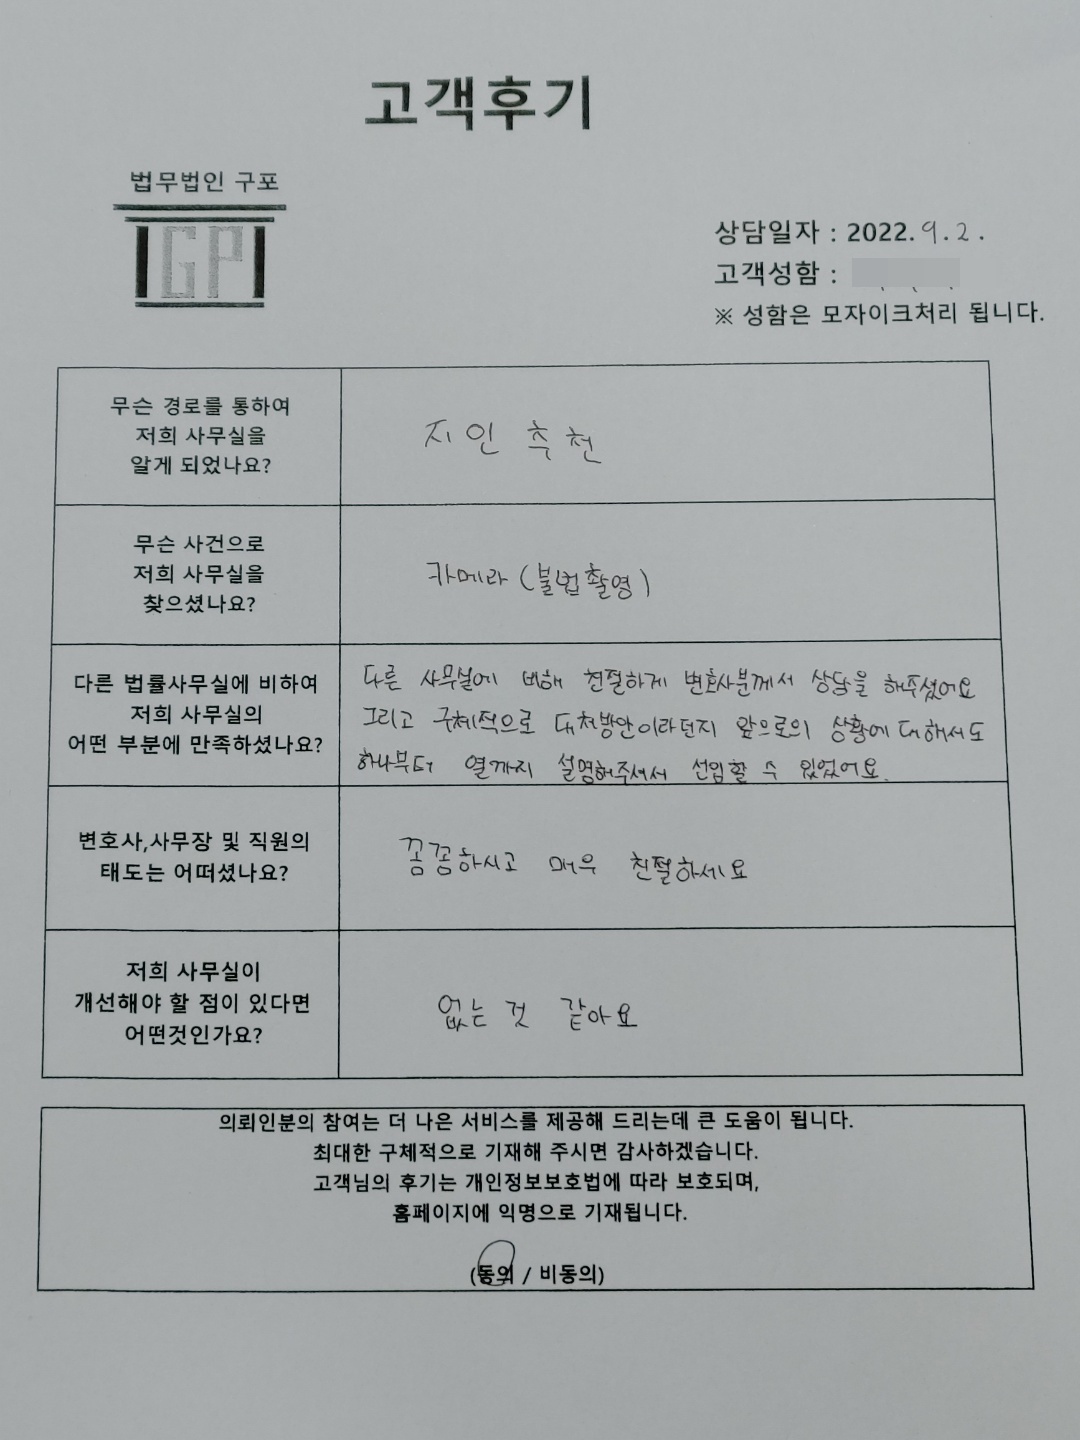 고객후기
법무법인 구포
GP
상담일자 : 2022. 9. 2.
고객성함 :
※ 성함은 모자이크처리 됩니다.
무슨 경로를 통하여
저희 사무실을
알게 되었나요?
지인 추천
무슨 사건으로
저희 사무실을
찾으셨나요?
카메라 (불법촬영)
다른 법률사무실에 비하여
저희 사무실의
어떤 부분에 만족하셨나요?
다른 사무실에 비해 친절하게 변호사분께서 상담을 해주셨어요
그리고 구체적으로 대처방안이라던지 앞으로의 상황에 대해서도
하나부터 열까지 설명해주셔서 선임할 수 있었어요.
변호사,사무장 및 직원의
태도는 어떠셨나요?
꼼꼼하시고 매우 친절하세요
저희 사무실이
개선해야 할 점이 있다면
어떤것인가요?
없는 것 같아요
의뢰인분의 참여는 더 나은 서비스를 제공해 드리는데 큰 도움이 됩니다.
최대한 구체적으로 기재해 주시면 감사하겠습니다.
고객님의 후기는 개인정보보호법에 따라 보호되며,
홈페이지에 익명으로 기재됩니다.
(동의 / 비동의)